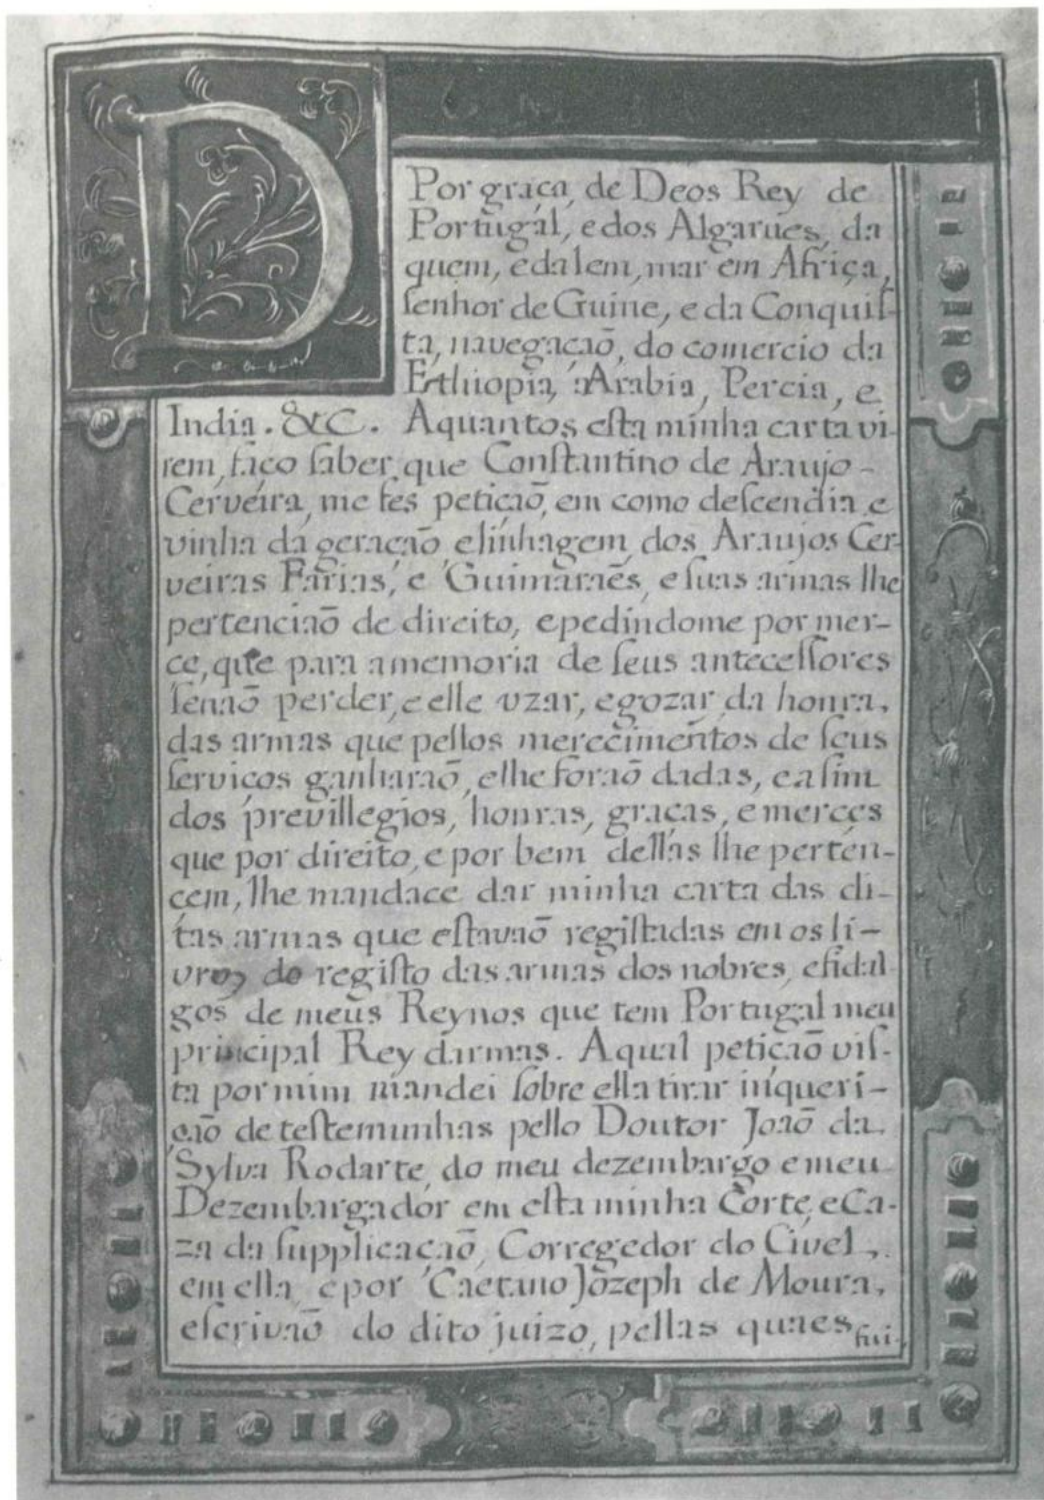 D
Por graça, de Deos Rey de
Portugal, e dos Algarues, da
quem, e dalem, mar em Africa,
ſenhor de Guine, e da Conquiſ-
ta, navegação, do comercio da
Ethiopia, Arabia, Percia, e
India. &C. Aquantos eſta minha carta vi-
rem, faço ſaber, que Conſtantino de Araujo -
Cerveira, me fes petição, em como deſcendia, e
vinha da geração elinhagem, dos Araujos Cer-
veiras Farias, e Guimaraẽs, e ſuas armas lhe
pertencião de direito, epedindome por mer-
ce, que para amemoria de ſeus anteceſſores
ſenaõ perder, e elle vzar, egozar, da honra,
das armas que pellos merecimentos de ſeus
ſerviços ganharaõ, elhe foraõ dadas, e aſim
dos previllegios, honras, graças, e merces
que por direito, e por bem dellas lhe perten-
cem, lhe mandace dar minha carta das di-
tas armas que eſtavaõ regiſtadas em os li-
vros do regiſto das armas dos nobres, efidal
gos de meus Reynos que tem Portugal meu
principal Rey darmas. Aqual petição viſ-
ta por mim mandei ſobre ella tirar inqueri-
ção de teſtemunhas pello Doutor João da
Sylva Rodarte, do meu dezembargo e meu
Dezembargador em eſta minha Corte, e Ca-
za da ſupplicação, Corregedor do Civel,
em ella, e por Caetano Jozeph de Moura,
eſcrivaõ do dito juizo, pellas quaes
fui-